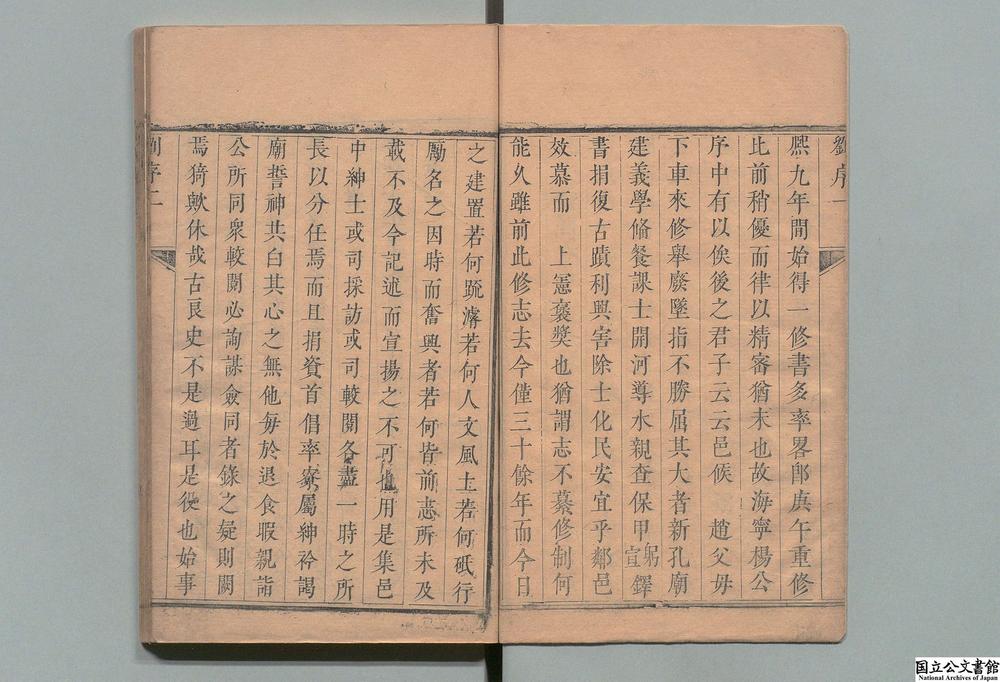 劉序一
熈九年間始得一修書多率畧郎庚午重修
比前稍優而律以精審猶未也故海寧楊公
序中有以俟後之君子云云邑候 趙父毋
下車來修舉廢墜指不勝屈其大者新孔廟
建義學偹餐課士開河導水親查保甲躬宣鐸
書捐復古蹟利興害除士化民安宜乎鄰邑
效慕而 上憲褒獎也猶謂志不纂修制何
能久雖前此修志去今僅三十餘年而今日
之建置若何䟽濬若何人文風土若何砥行
勵名之因時而奮興者若何皆前志所未及
載不及今記述而宣揚之不可也用是集邑
中紳士或司採訪或司較閱各盡一時之所
長以分任焉而且捐資首倡率寮屬紳衿謁
廟誓神共白其心之無他每於退食暇親詣
公所同衆較閱必詢謀僉同者錄之疑則闕
焉猗歟休哉古良史不是過耳是役也始事
劉序二
国立公文書館
National Archives of Japan